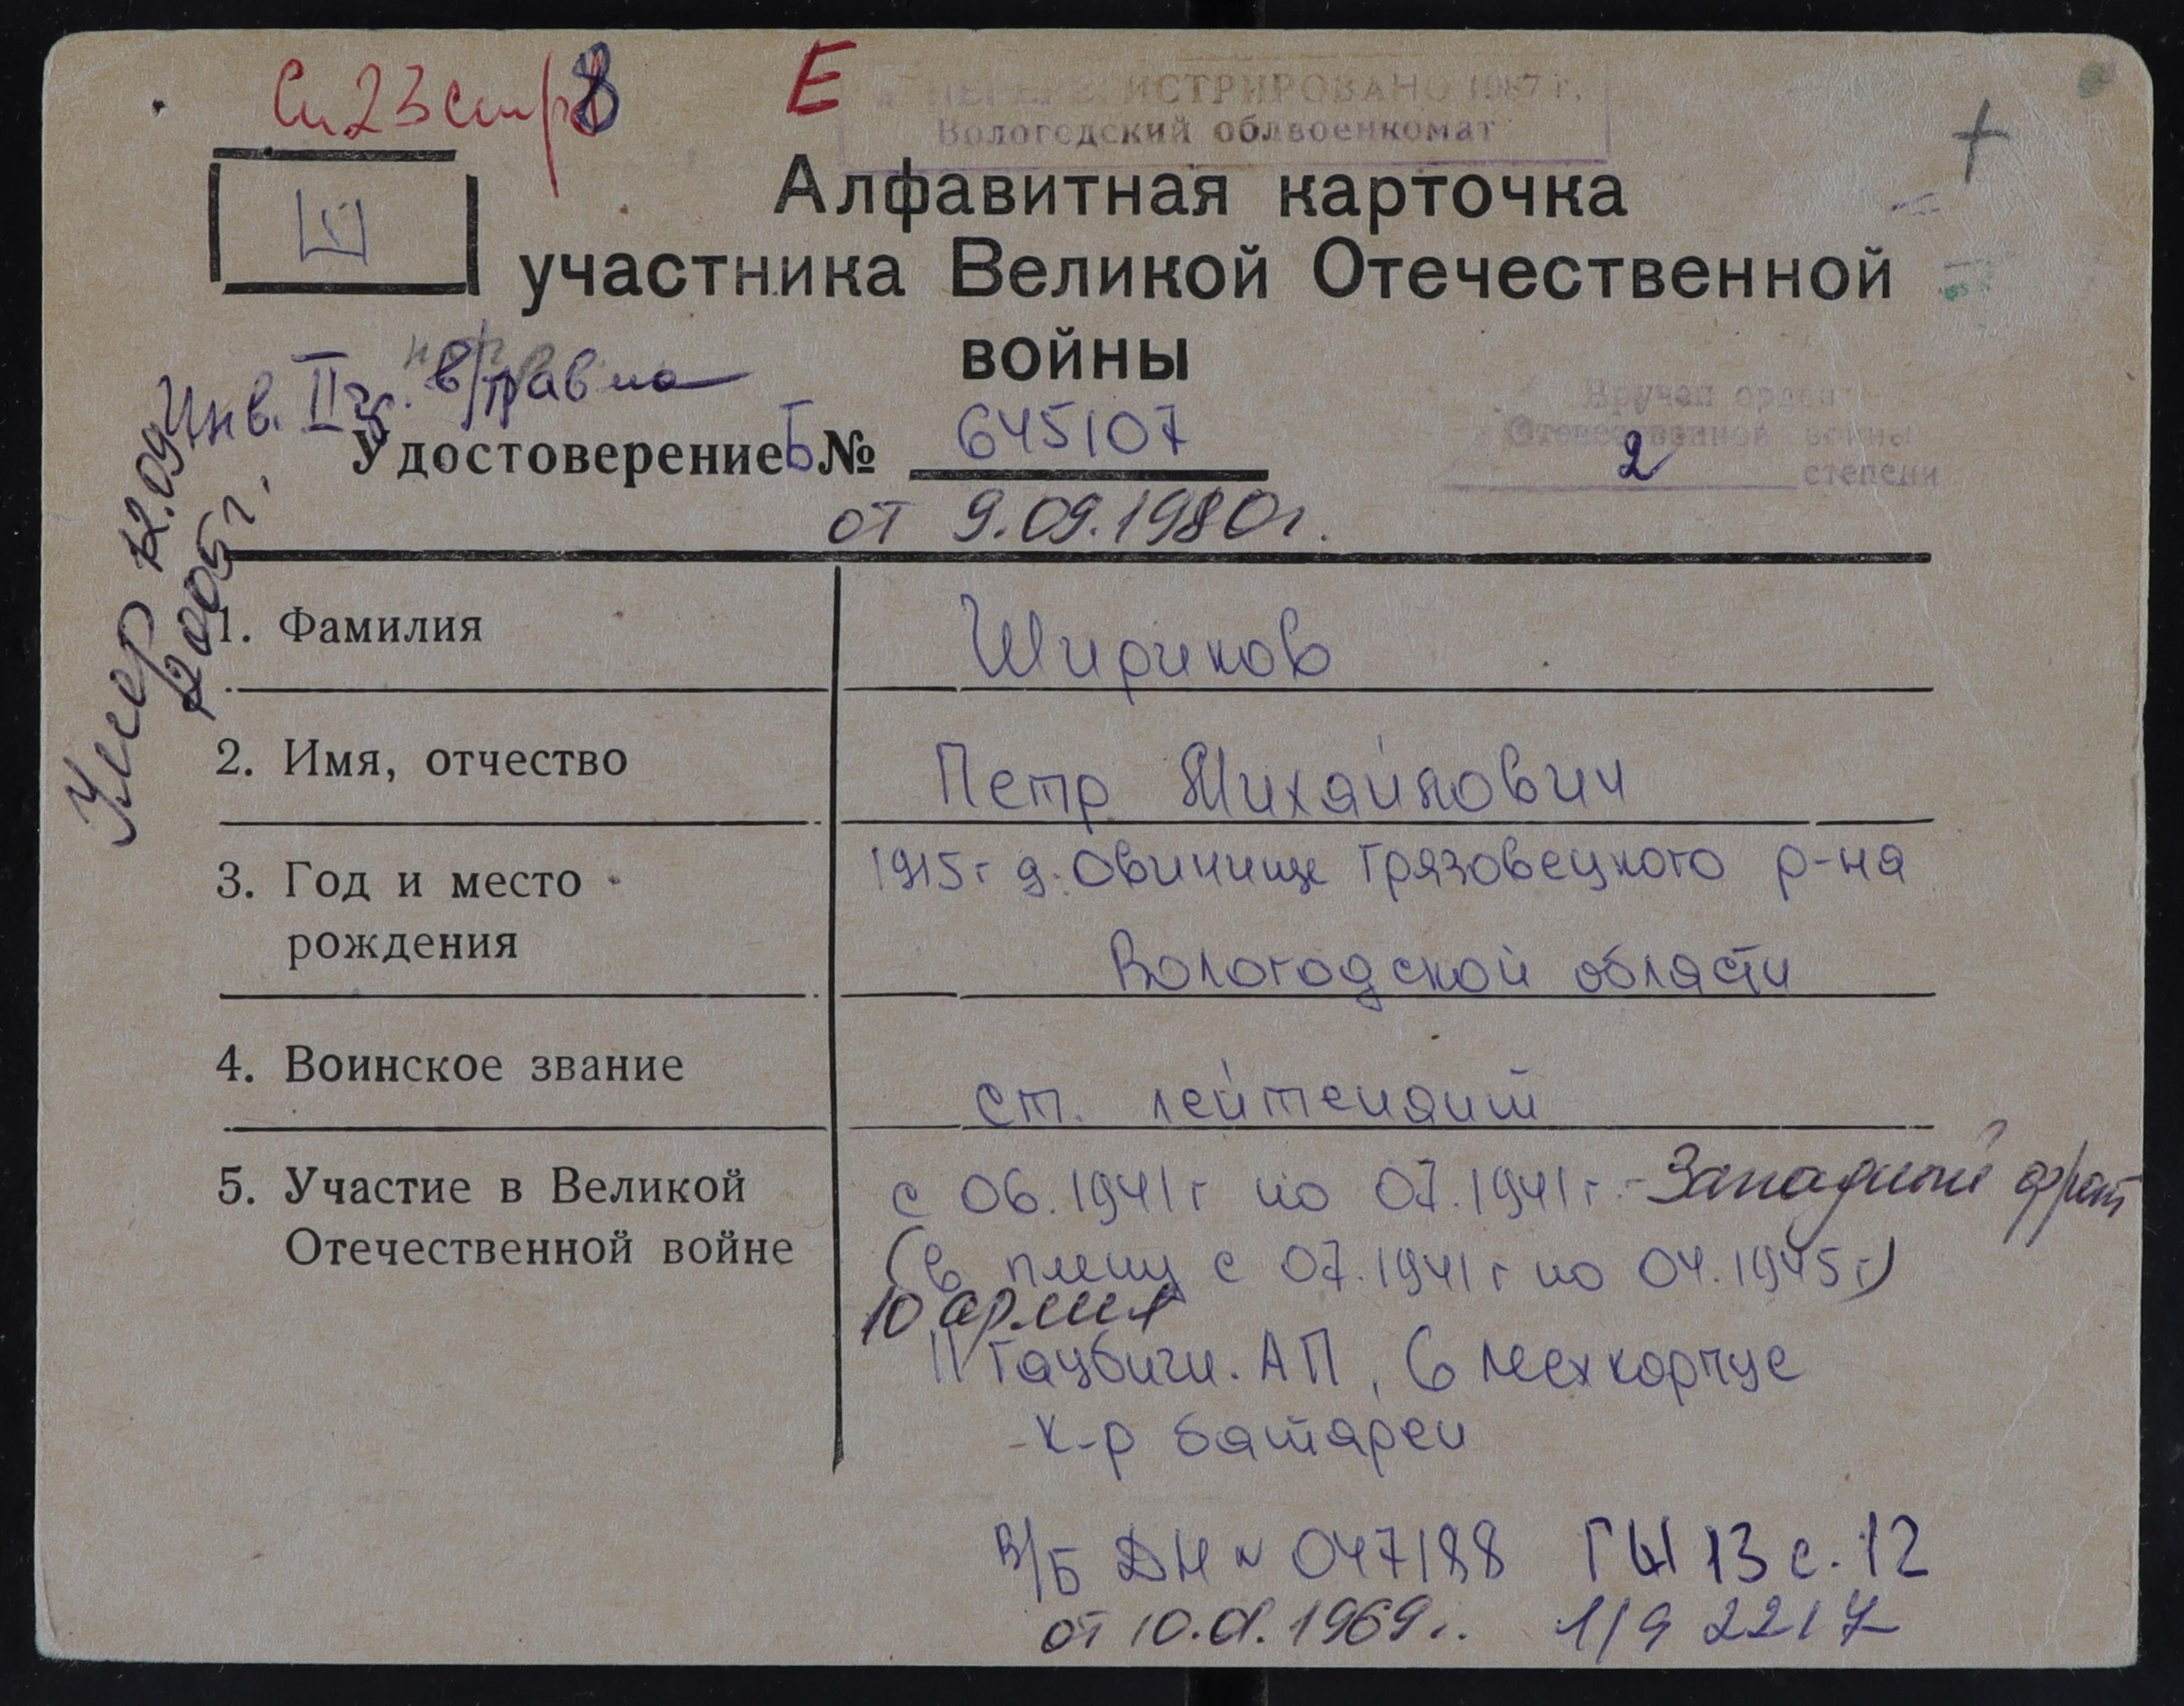 Сп 23 стр 8
Е
ПЕРЕРЕГИСТРИРОВАНО 1987 г.
Вологодский облвоенкомат
Е
Алфавитная карточка
участника Великой Отечественной
войны
Инв. II гр. в/травма
Вручен орден
Отечественной войны
2 степени
Удостоверение Б № 645107
от 9.09.1980г.
Умер 12.09
2005 г.
1. Фамилия Шириков
2. Имя, отчество Петр Михайлович
3. Год и место 1915г д. Овинище Грязовецкого р-на
рождения Вологодской области
4. Воинское звание ст. лейтенант
5. Участие в Великой с 06.1941г по 07.1941г. - Западный фронт
Отечественной войне (в плену с 07.1941г по 04.1945г)
10 армия
11 Гаубичн. АП, 6 мехкорпус
- к-р батареи
В/Б ДН № 047188 13 с. 12
от 1969г. 2217